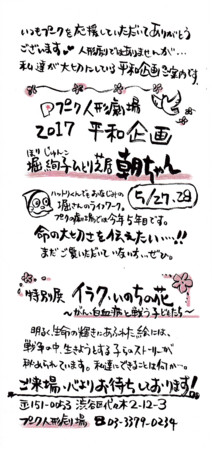 いつもプークを応援していただいてありがとう
ございます♥ 人形劇ではありませんが…
私達が大切にしている平和企画ご案内です。
プーク人形劇場
2017 平和企画
ほり じゅんこ
堀 絢子ひとり芝居 朝ちゃん
ハットリくんでおなじみの
堀さんのライフワーク。
プークの劇場では今年5年目です。
5/27.28
命の大切さを伝えたい…!!
まだご覧いただいていない方、ぜひ。
特別展 イラク・いのちの花
〜がん・白血病と戦う子どもたち〜
明るく、生命の輝きにあふれた絵には、
戦争の中、生きようとする子らのストーリーが
秘められています。私達にできることは何か…。
ご来場・心よりお待ちしております!
〒151-0053 渋谷区代々木2-12-3
プーク人形劇場 ☎03-3379-0234